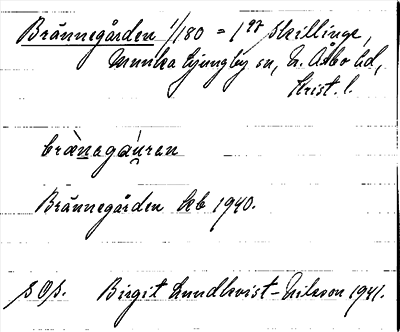 Brännegården 1/180 = 1 19 Skillinge,
Munka Ljungby sn, N. Åsbo hd,
Krist. l.
brä̀nagáuren
Brännegården Ek 1940.
s Os. Birgit Lundkvist-Nilsson 1941.